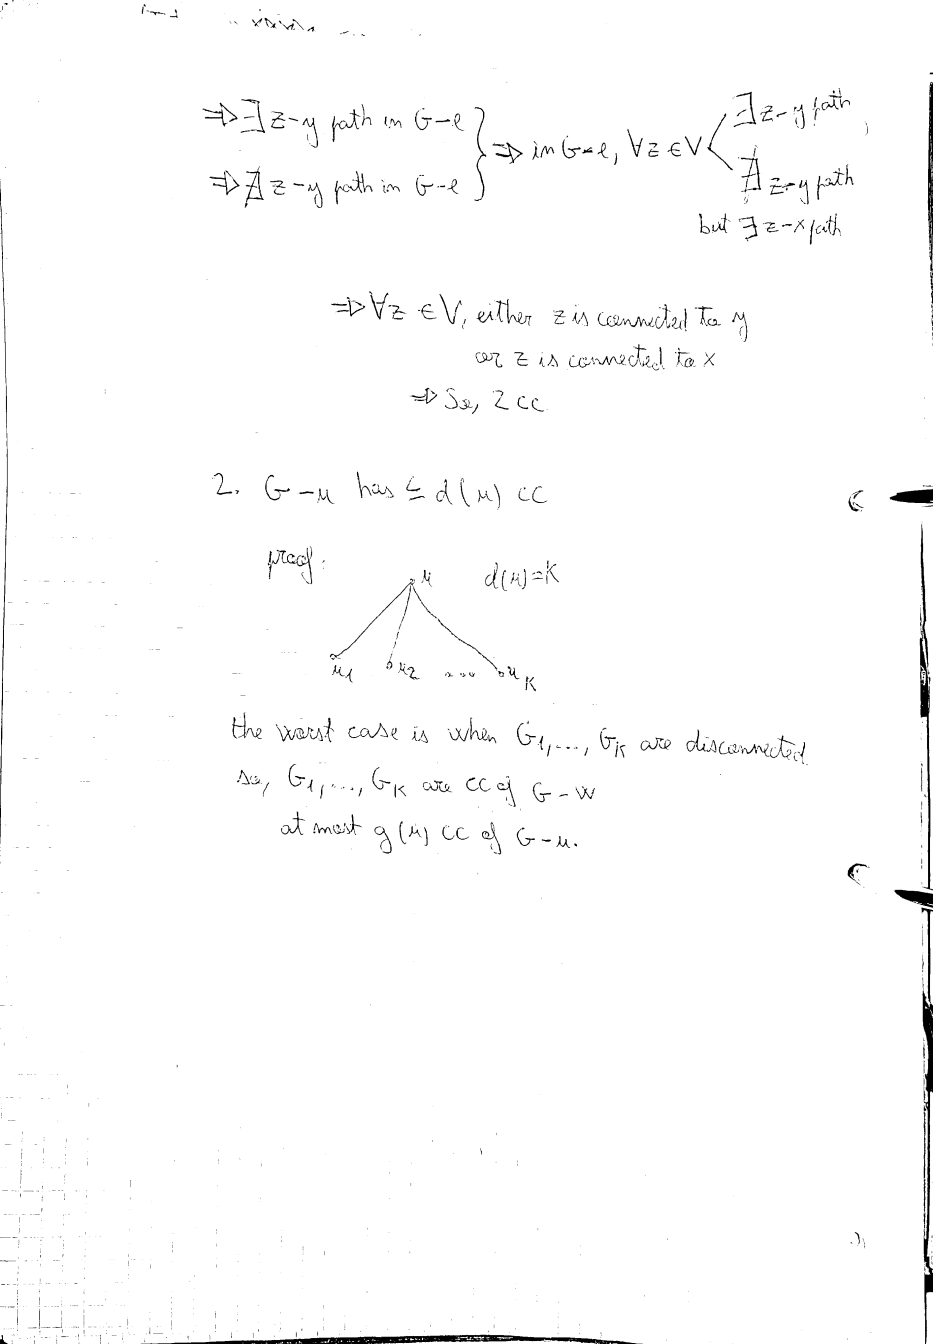 ⇒ ∃ z-y path in G-e } ⇒ in G-e, ∀z ∈ V < ∃ z-y path
⇒ ∄ z-y path in G-e ∄ z-y path
but ∃ z-x path
⇒ ∀z ∈ V, either z is connected to y
or z is connected to x
⇒ So, 2 cc
2. G-u has ≤ d(u) cc
proof:
u d(u)=K
u1 u2 ... uK
the worst case is when G1,..., GK are disconnected
so, G1,..., GK are cc of G-w
at most g(u) cc of G-u.